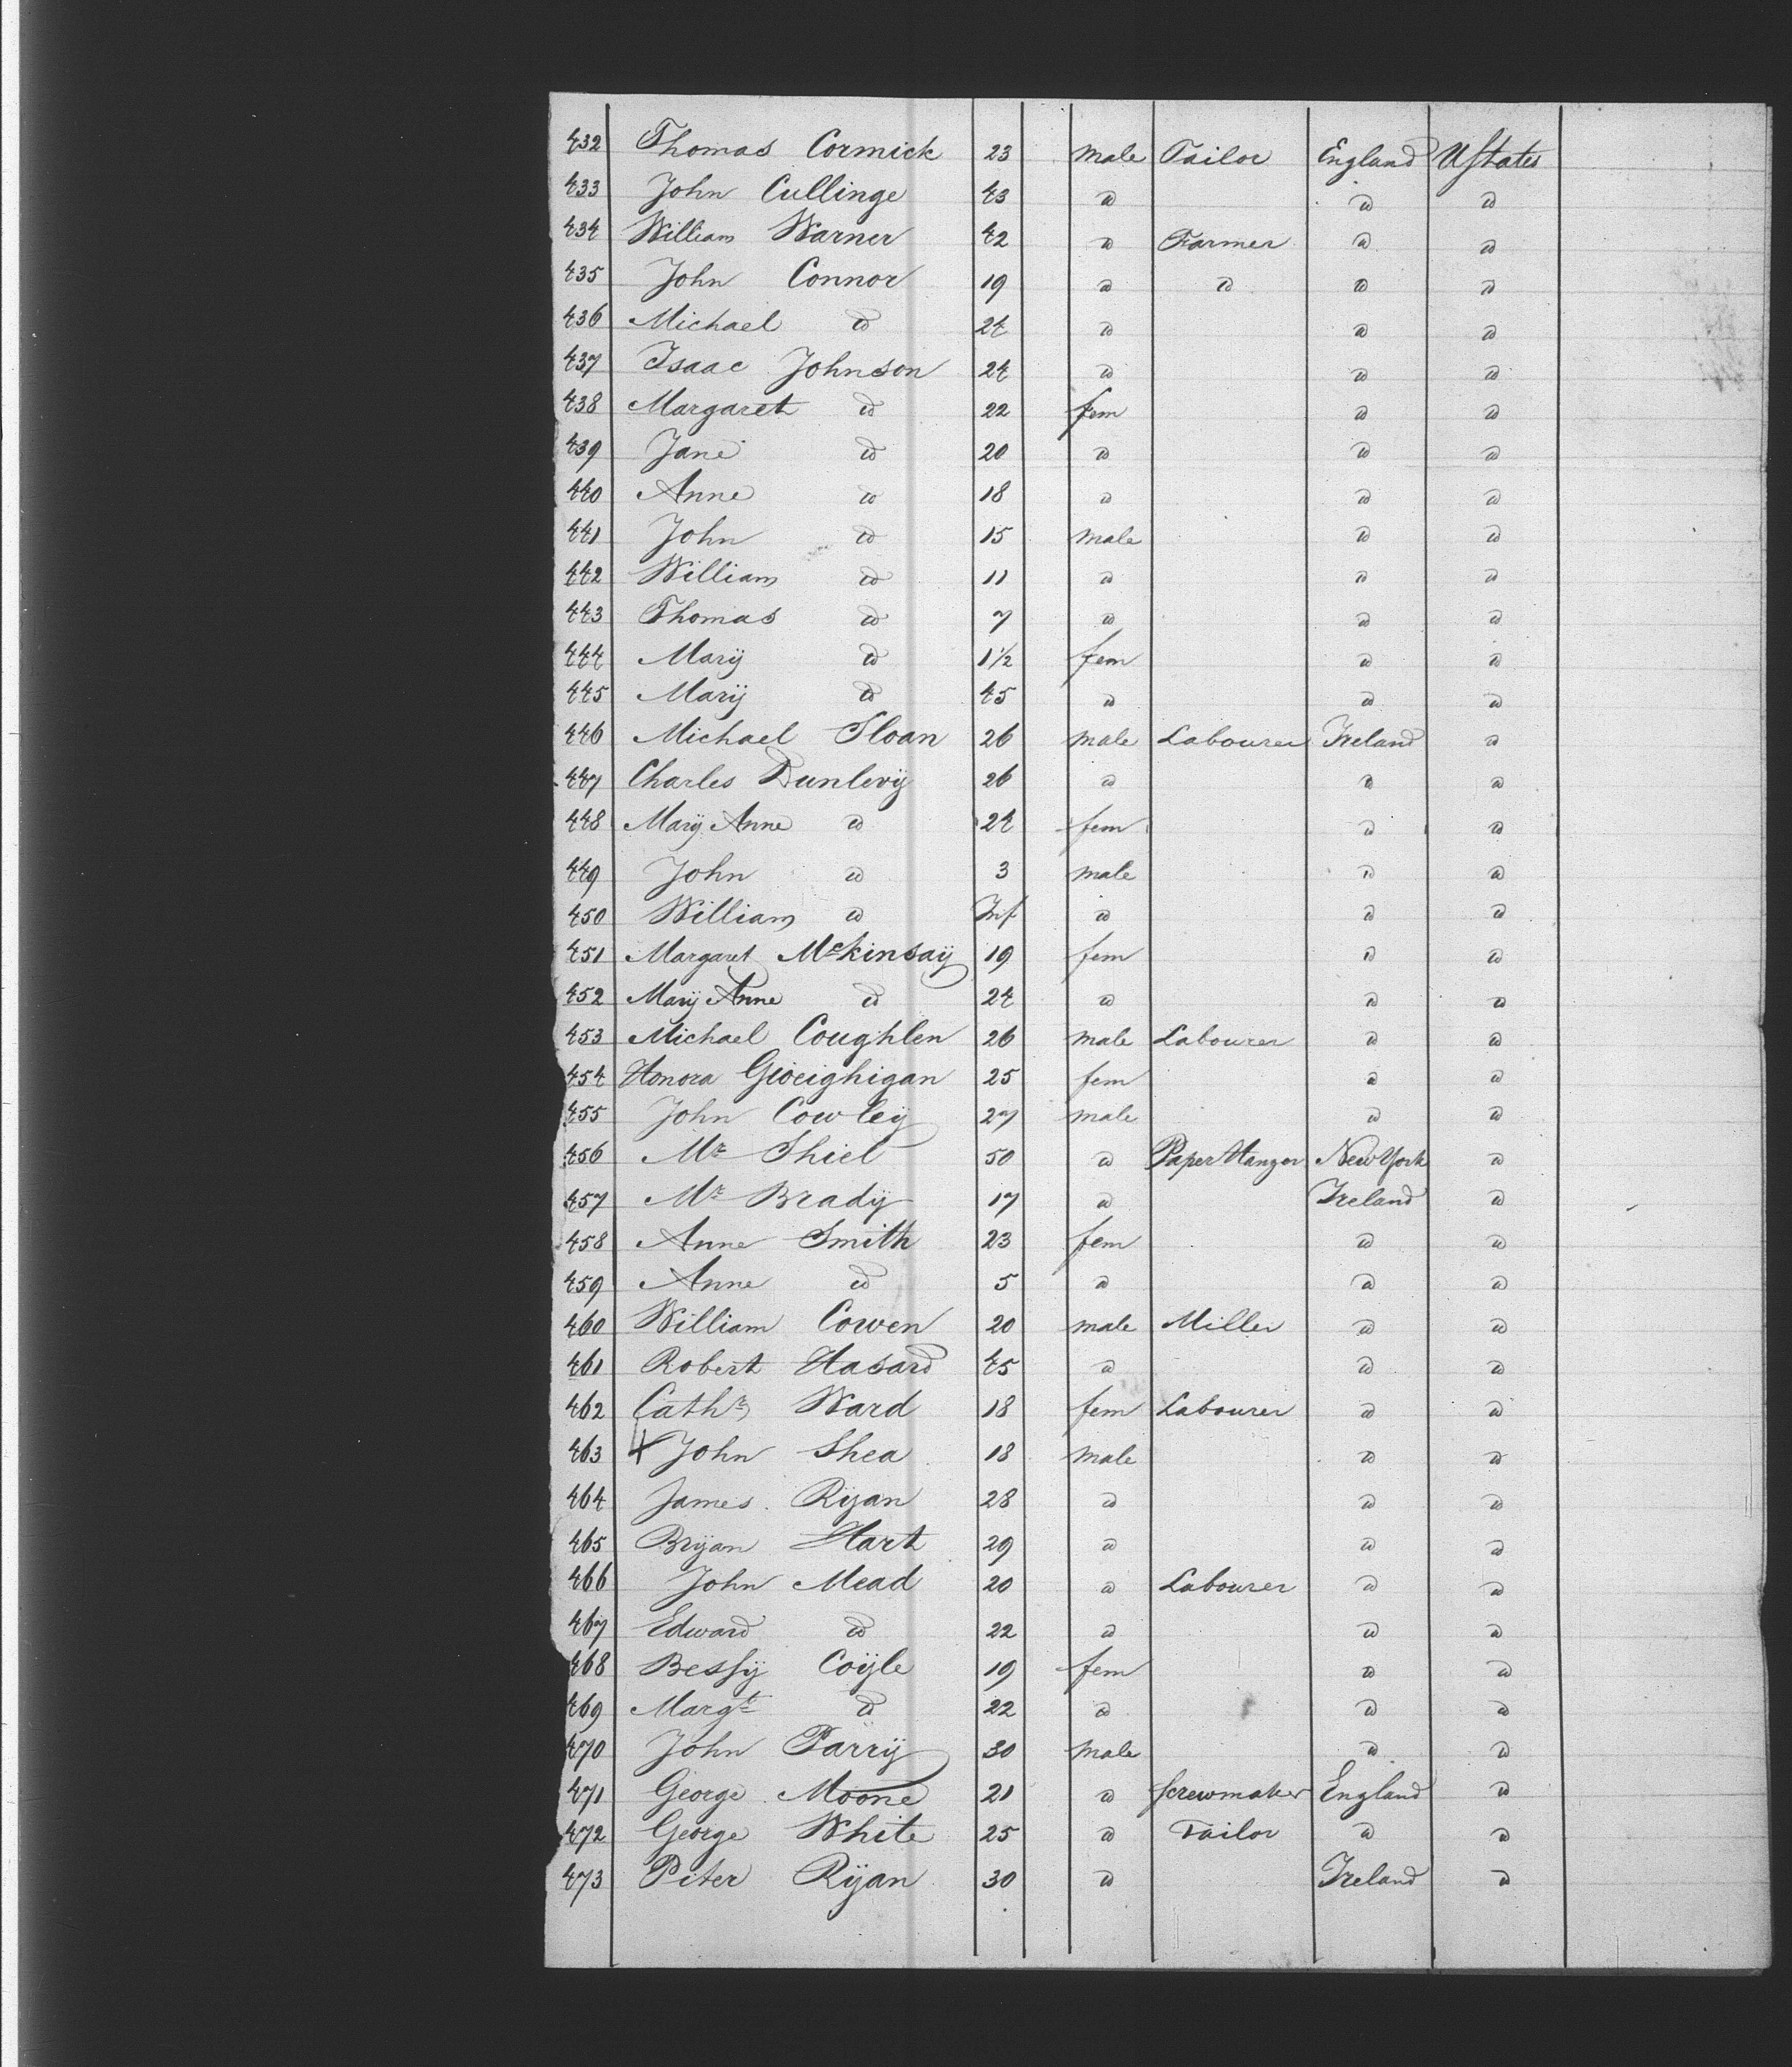 432 Thomas Cormick 23 male Tailor England UStates
433 John Cullinge 43 do do do
434 William Warner 42 do Farmer do do
435 John Connor 19 do do do do
436 Michael do 24 do do do
437 Isaac Johnson 24 do do do
438 Margaret do 22 fem do do
439 Jane do 20 do do do
440 Anne do 18 do do do
441 John do 15 male do do
442 William do 11 do do do
443 Thomas do 7 do do do
444 Mary do 1½ fem do do
445 Mary do 45 do do do
446 Michael Sloan 26 male Labourer Ireland do
447 Charles Dunlevy 26 do do do
448 Mary Anne do 24 fem do do
449 John do 3 male do do
450 William do Inf do do do
451 Margaret McKinsay 19 fem do do
452 Mary Anne do 24 do do do
453 Michael Coughlen 26 male Labourer do do
454 Honora 25 fem do do
455 John Cowley 27 male do do
456 Mr Shiel 50 do Paper Hanger New York do
457 Mr Brady 17 do Ireland do
458 Anne Smith 23 fem do do
459 Anne do 5 do do do
460 William Cowen 20 male Miller do do
461 Robert Hasard 45 do do do
462 Cathn Ward 18 fem Labourer do do
463 John Shea 18 male do do
464 James Ryan 28 do do do
465 Bryan Hart 29 do do do
466 John Mead 20 do Labourer do do
467 Edward do 22 do do do
468 Bessy Coyle 19 fem do do
469 Margt do 22 do do do
470 John Parry 30 male do do
471 George Moone 21 do Screwmaker England do
472 George White 25 do Tailor do do
473 Peter Ryan 30 do Ireland do